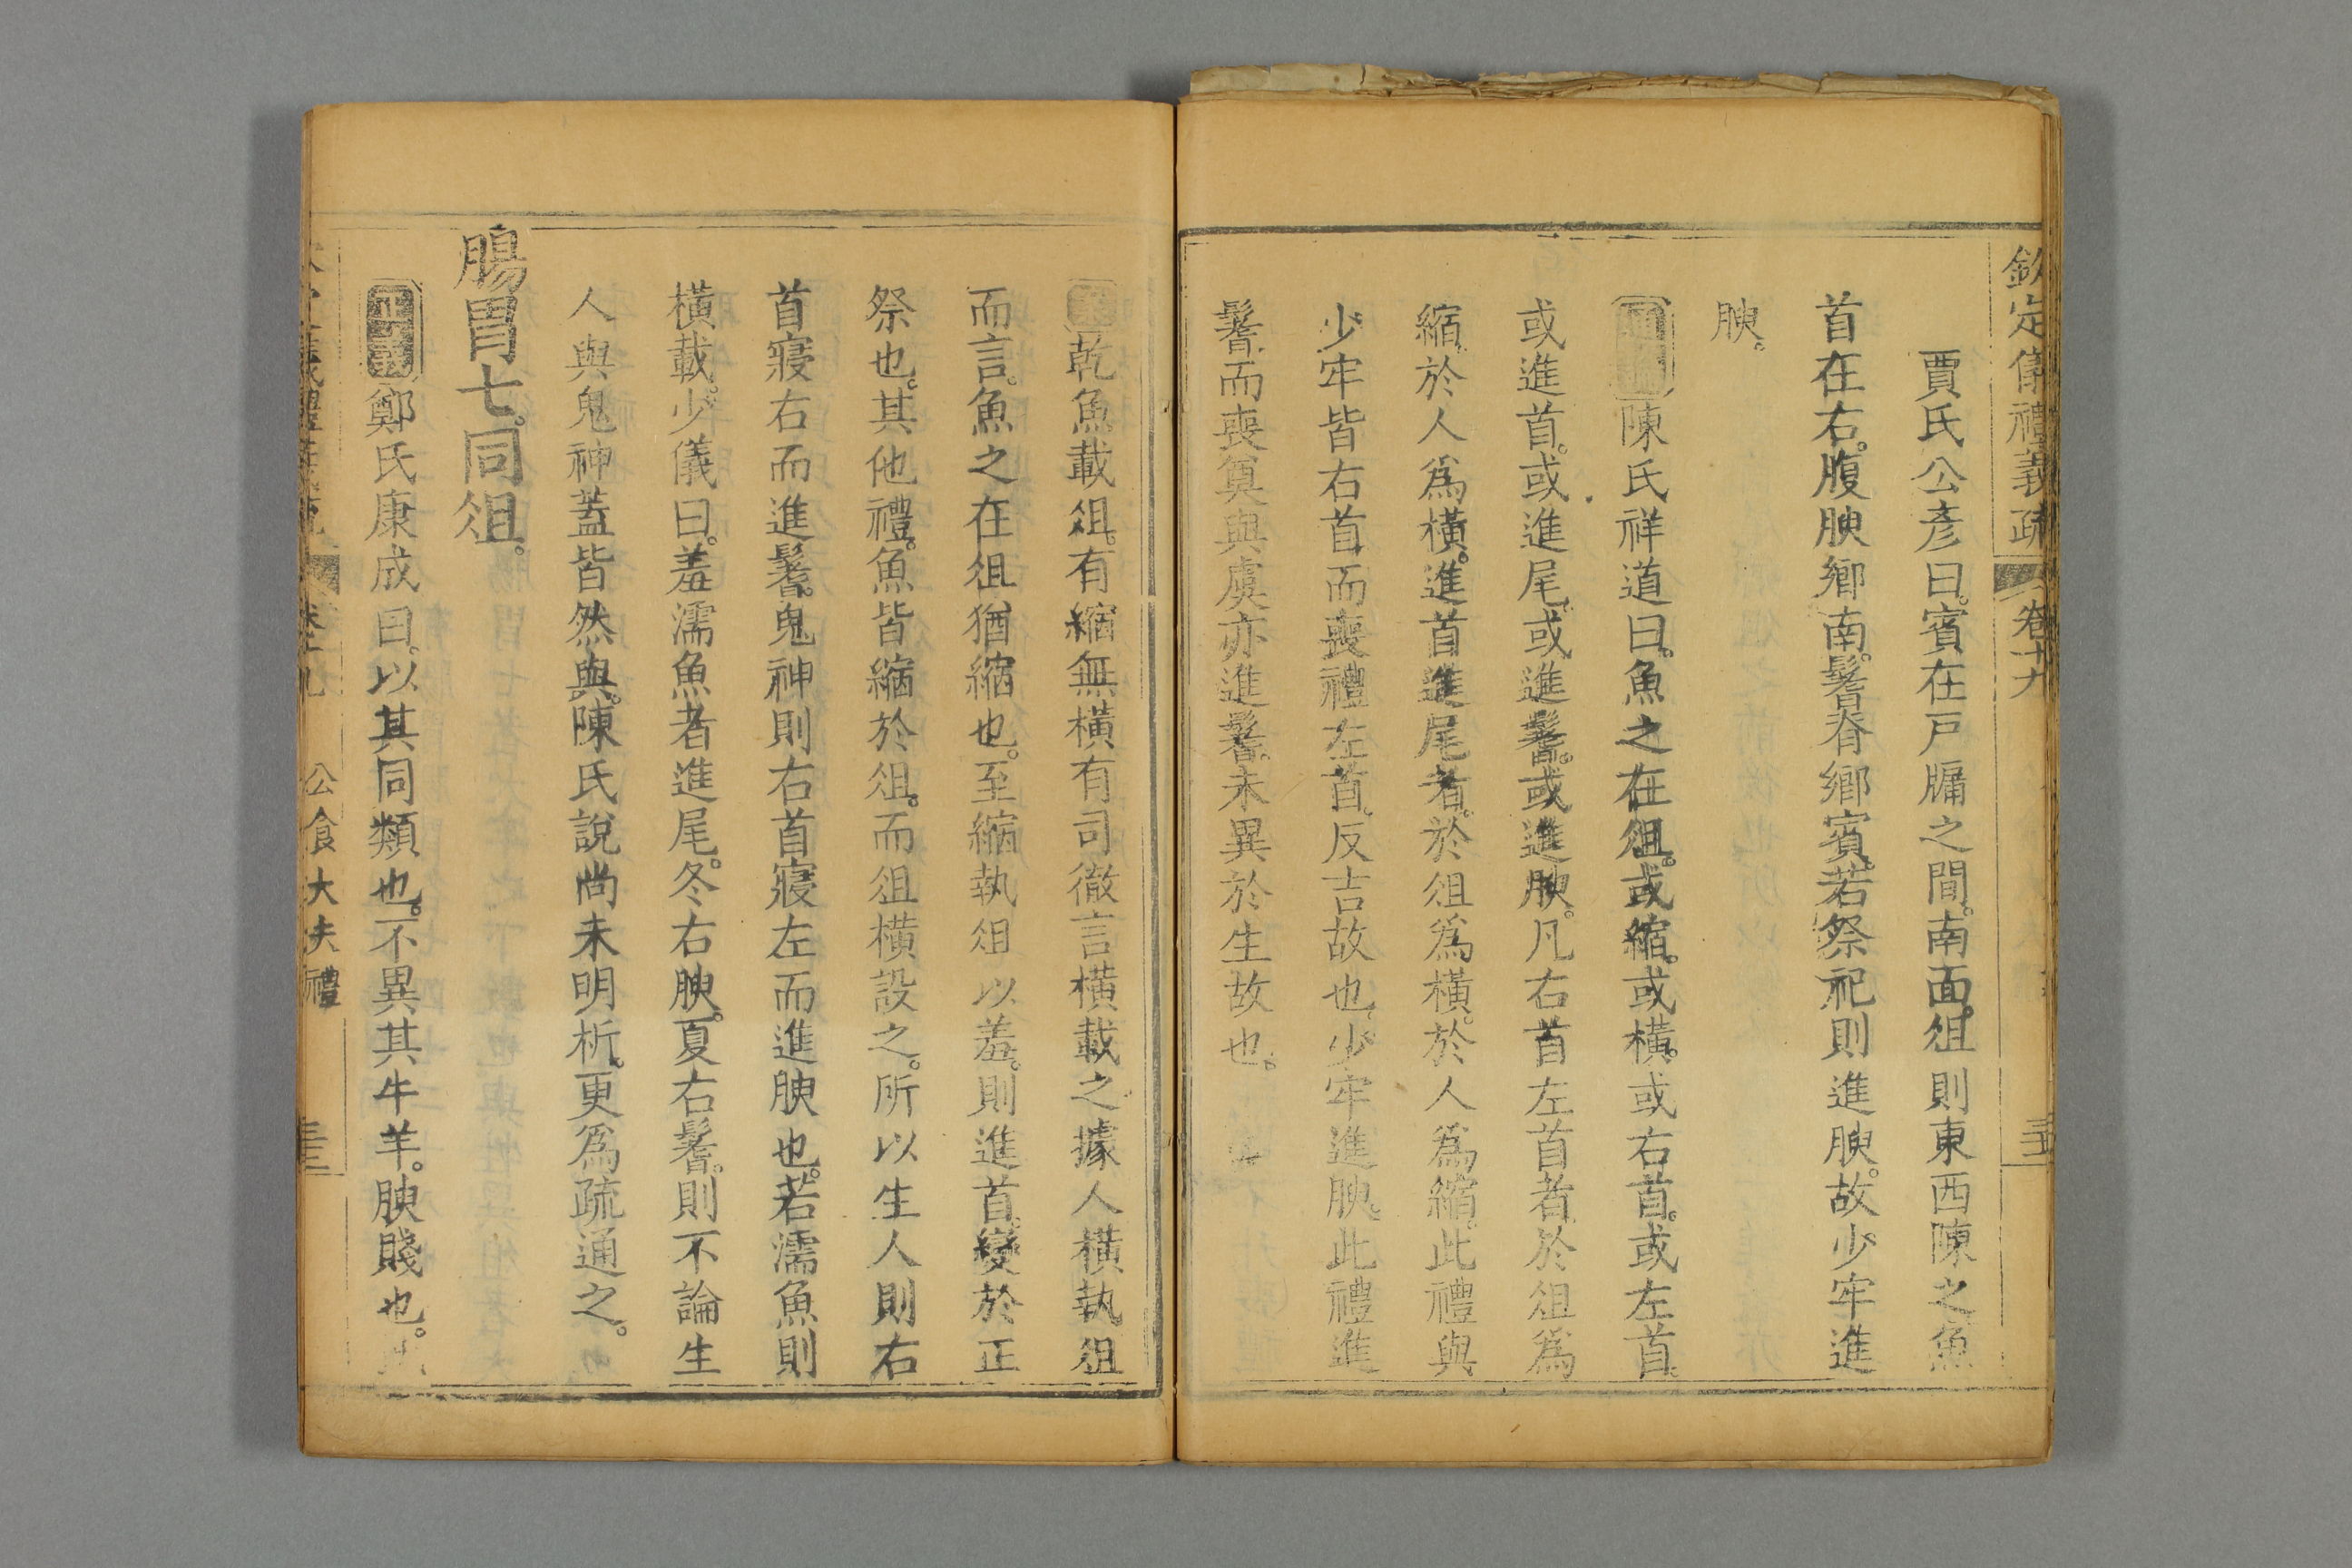 欽定儀禮義疏 卷十九
賈氏公彥曰。賓在戸牖之間。南面。俎則東西陳之。魚
首在右。腹腴鄉南。鬐脊鄉賓。若祭祀則進腴。故少牢進
腴。
陳氏祥道曰。魚之在俎。或縮。或橫。或右首。或左首。
或進首。或進尾。或進鬐。或進腴。凡右首左首者。於俎爲
縮。於人爲橫。進首進尾者。於俎爲橫。於人爲縮。此禮與
少牢皆右首。而喪禮左首。反吉故也。少牢進腴。此禮進
鬐。而喪奠與虞亦進鬐。未異於生故也。
乾魚載俎。有縮無橫。有司徹言橫載之。據人橫執俎
而言。魚之在俎猶縮也。至縮執俎以羞。則進首。變於正
祭也。其他禮。魚皆縮於俎。而俎橫設之。所以生人則右
首寢右而進鬐。鬼神則右首寢左而進腴也。若濡魚則
橫載。少儀曰。羞濡魚者進尾。冬右腴。夏右鬐。則不論生
人與鬼神蓋皆然與。陳氏說尚未明析。更爲疏通之。
腸胃七。同俎。
正義鄭氏康成曰。以其同類也。不異其牛羊。腴賤也。
公食大夫禮